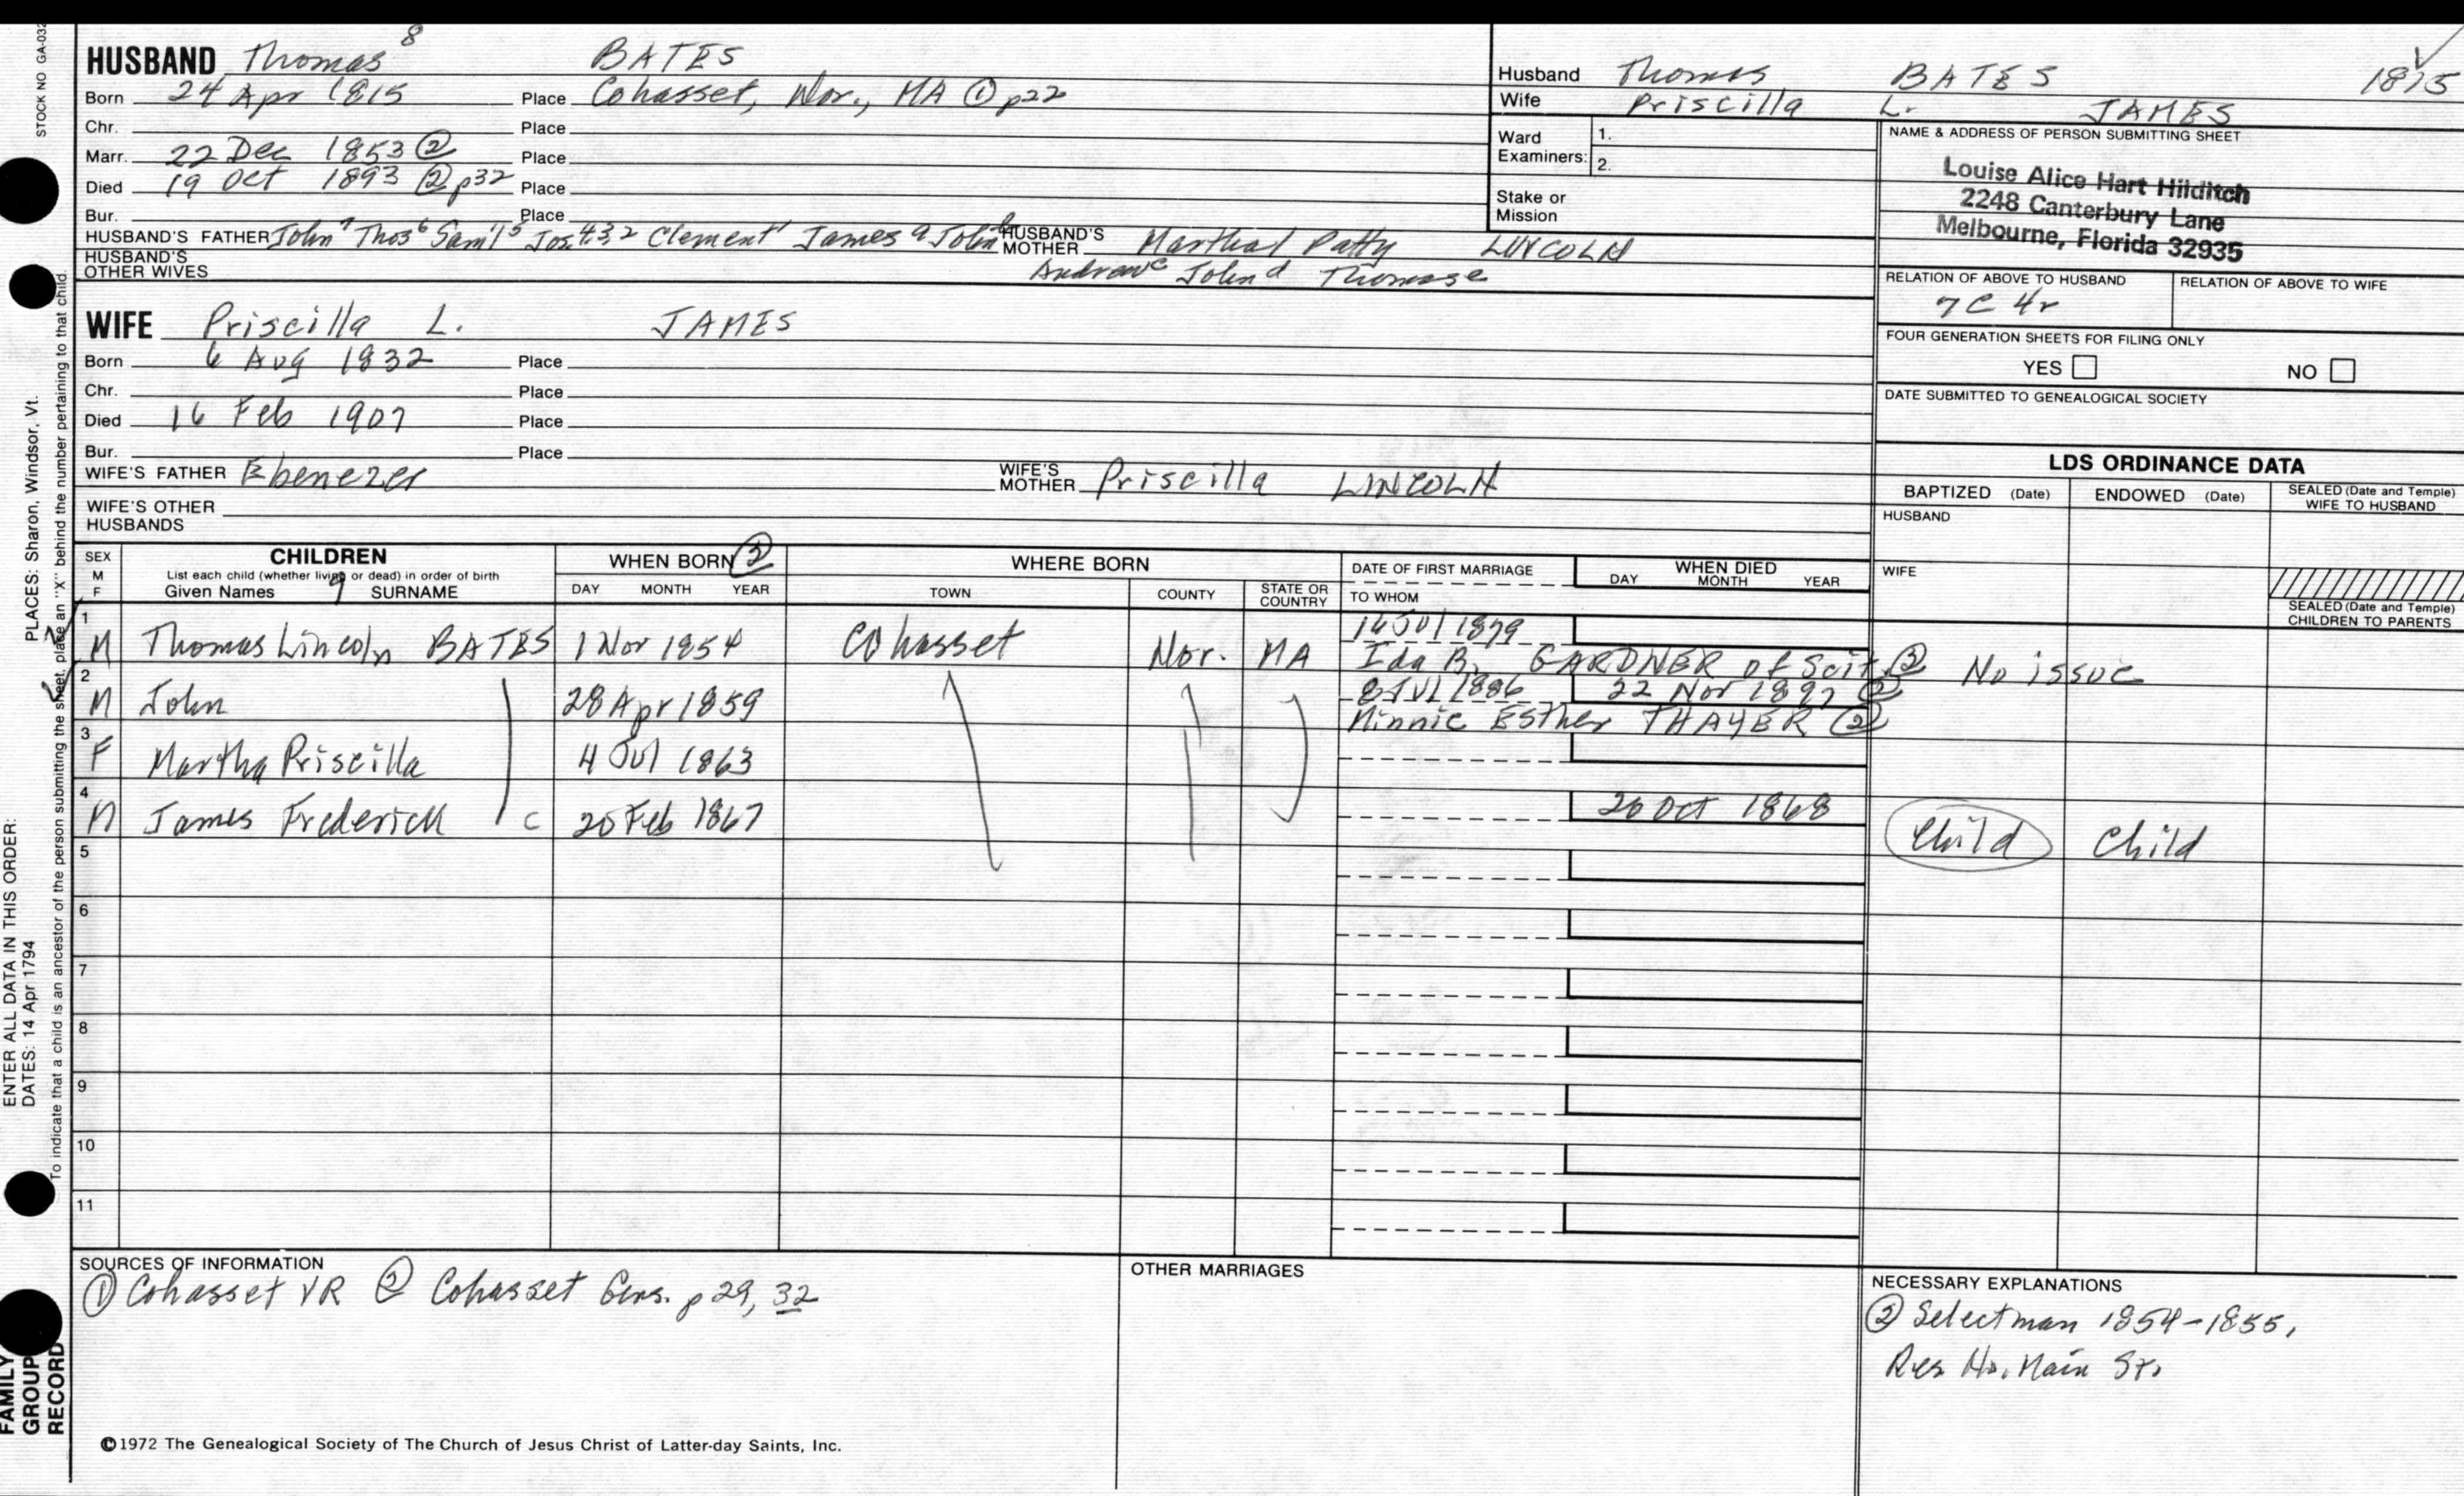 STOCK NO GA-032
HUSBAND Thomas 8 BATES
Born 24 Apr 1815 Place Cohasset, Nor., MA ① p22
Chr. Place
Marr. 22 Dec 1853 ② Place
Died 19 Oct 1893 ② p32 Place
Bur. Place
HUSBAND'S FATHER John 7 Thos 6 Sam'l 5 Jos 4 3 2 Clement 1 James a John b HUSBAND'S MOTHER Martha Patty LINCOLN
HUSBAND'S OTHER WIVES Andrew c John d Thomas e
Husband Thomas BATES 1815
Wife Priscilla L. JAMES
Ward Examiners: 1.
2.
Stake or Mission
NAME & ADDRESS OF PERSON SUBMITTING SHEET
Louise Alice Hart Hilditch
2248 Canterbury Lane
Melbourne, Florida 32935
RELATION OF ABOVE TO HUSBAND RELATION OF ABOVE TO WIFE
7 C 4r
FOUR GENERATION SHEETS FOR FILING ONLY
YES NO
DATE SUBMITTED TO GENEALOGICAL SOCIETY
WIFE Priscilla L. JAMES
Born 6 Aug 1832 Place
Chr. Place
Died 16 Feb 1907 Place
Bur. Place
WIFE'S FATHER Ebenezer WIFE'S MOTHER Priscilla LINCOLN
WIFE'S OTHER HUSBANDS
LDS ORDINANCE DATA
BAPTIZED (Date) ENDOWED (Date) SEALED (Date and Temple) WIFE TO HUSBAND
HUSBAND
WIFE
SEALED (Date and Temple) CHILDREN TO PARENTS
SEX M F CHILDREN WHEN BORN ② WHERE BORN DATE OF FIRST MARRIAGE WHEN DIED
List each child (whether living or dead) in order of birth
Given Names 9 SURNAME DAY MONTH YEAR TOWN COUNTY STATE OR COUNTRY TO WHOM DAY MONTH YEAR
1 M Thomas Lincoln BATES 1 Nov 1854 Cohasset Nor. MA 16 Jul 1879
Ida B. GARDNER of Scit ② No issue
2 M John 28 Apr 1859 8 Jul 1886 22 Nov 1897 ②
Minnie Esther THAYER ②
3 F Martha Priscilla 4 Jul 1863
4 M James Frederick c 25 Feb 1867 20 Oct 1868 Child Child
5
6
7
8
9
10
11
SOURCES OF INFORMATION
① Cohasset VR ② Cohasset Gens. p 29, 32
OTHER MARRIAGES
NECESSARY EXPLANATIONS
② Selectman 1854-1855,
Res No. Main St.
©1972 The Genealogical Society of The Church of Jesus Christ of Latter-day Saints, Inc.
ENTER ALL DATA IN THIS ORDER:
DATES: 14 Apr 1794 PLACES: Sharon, Windsor, Vt.
To indicate that a child is an ancestor of the person submitting the sheet, place an "X" behind the number pertaining to that child.
FAMILY
GROUP
RECORD